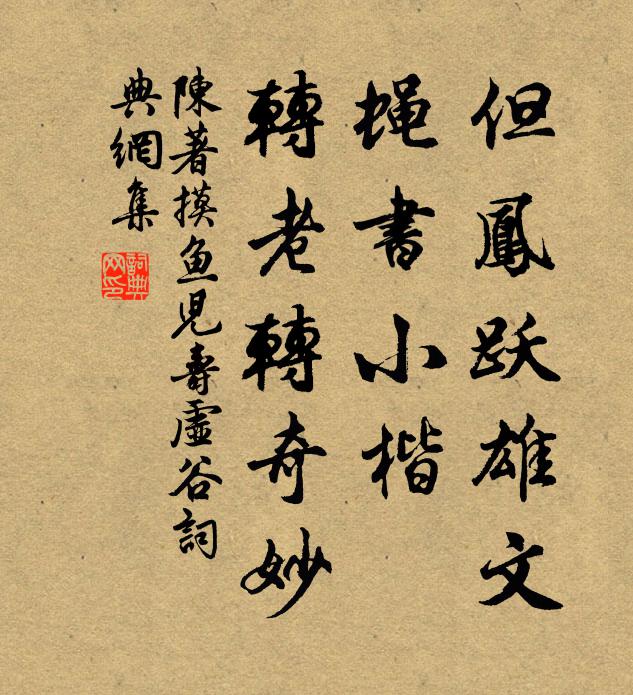 但鳳跃雄文
蝇書小楷
轉老轉奇妙
陳著摸魚兒壽虛谷詞
典網集
詞典网印